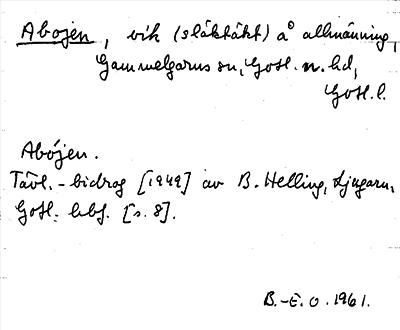 Abojen, vik (släktäkt) å allmänning,
Gammelgarns sn, Gotl. n. hd,
Gotl. l.
Abójen.
Tävl.-bidrag [1949] av B. Helling, Ljugarn,
Gotl. [s. 8].
B.-E. O. 1961.